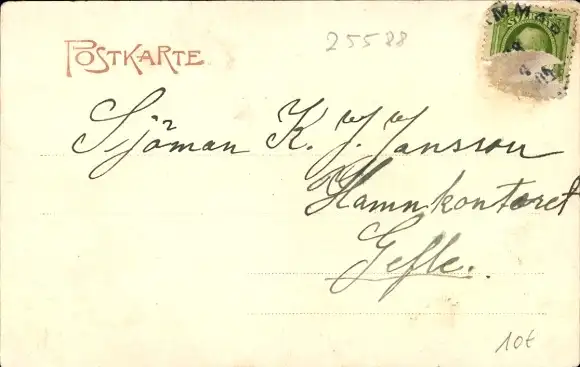 POSTKARTE
25588
Sjöman K. J. Jansson
Hamnkontoret
Gefle.
10t